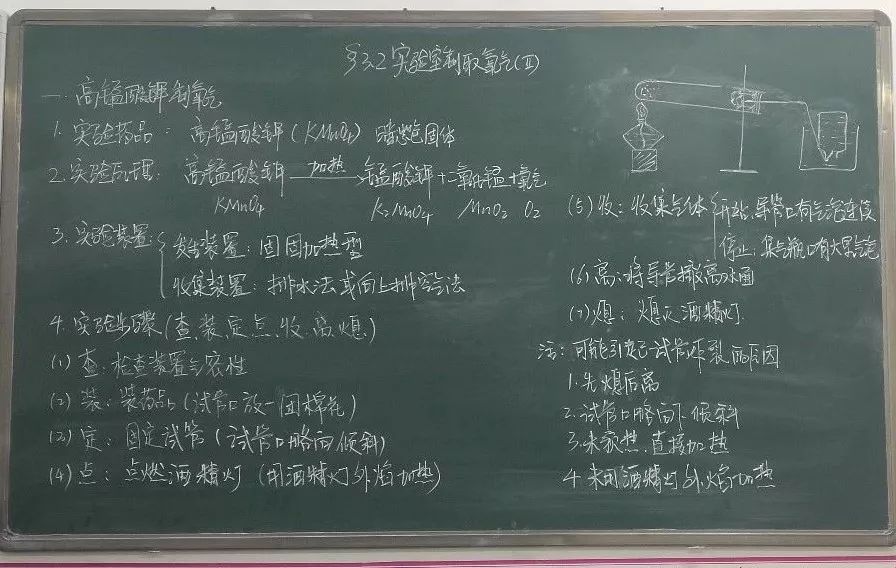 §3.2 实验室制取氧气(Ⅱ)
一. 高锰酸钾制氧气
1. 实验药品: 高锰酸钾(KMnO4) 暗紫色固体
2. 实验原理: 高锰酸钾 —加热→ 锰酸钾+二氧化锰+氧气
KMnO4 K2MnO4 MnO2 O2
3. 实验装置: 发生装置: 固固加热型
收集装置: 排水法或向上排空气法
4. 实验步骤(查.装.定.点.收.离.熄)
(1) 查: 检查装置气密性
(2) 装: 装药品 (试管口放一团棉花)
(3) 定: 固定试管 (试管口略向倾斜)
(4) 点: 点燃酒精灯 (用酒精灯外焰加热)
(5) 收: 收集气体 开始: 导管口有气泡连续
停止: 集气瓶口有大气泡
(6) 离: 将导管撤离水面
(7) 熄: 熄灭酒精灯.
注: 可能引起试管炸裂的原因
1. 先熄后离
2. 试管口略向下倾斜
3. 未预热.直接加热
4. 未用酒精灯外焰加热